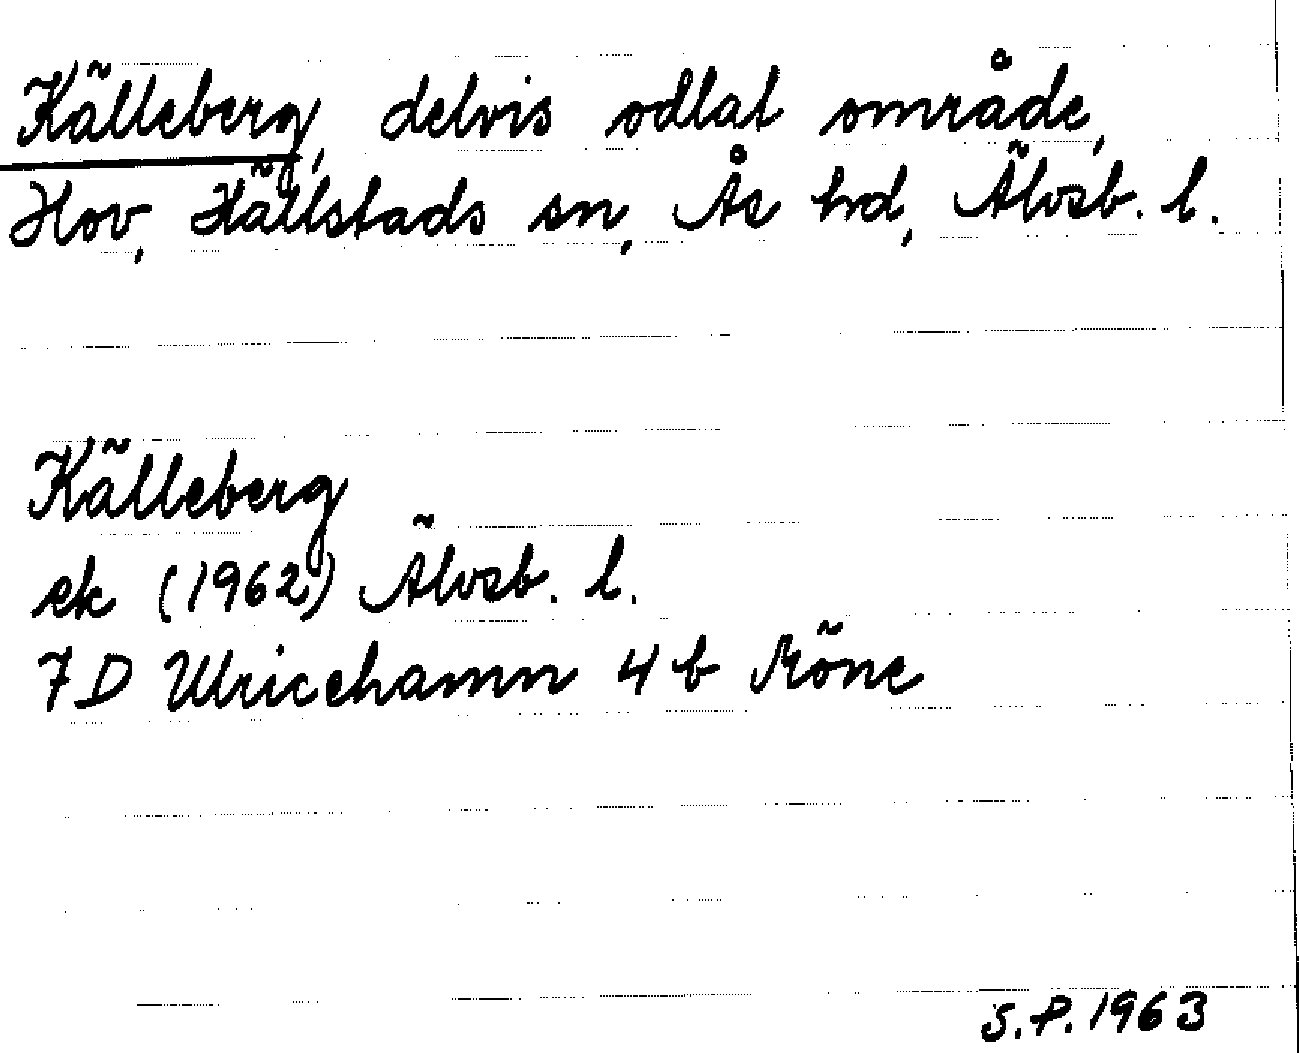 Källeberg, delvis odlat område,
Hov, Hällstads sn, Ås hd, Älvsb. l.
Källeberg
ek (1962) Älvsb. l.
7D Ulricehamn 4 b Möne
S.P. 1963